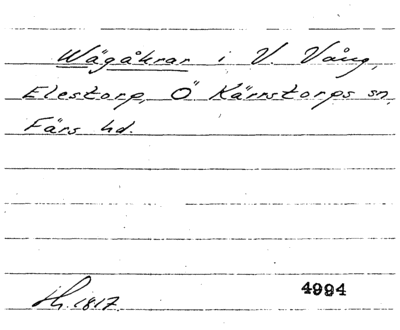 Wägåkrar i V. Vång,
Elestorp, Ö Kärrstorps sn,
Färs hd.
Lh. 1817.
4994